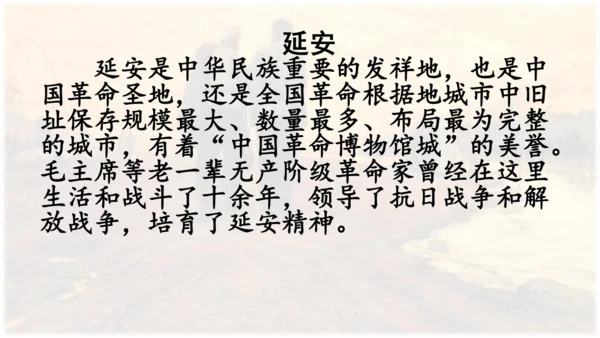 延安
延安是中华民族重要的发祥地，也是中
国革命圣地，还是全国革命根据地城市中旧
址保存规模最大、数量最多、布局最为完整
的城市，有着“中国革命博物馆城”的美誉。
毛主席等老一辈无产阶级革命家曾经在这里
生活和战斗了十余年，领导了抗日战争和解
放战争，培育了延安精神。